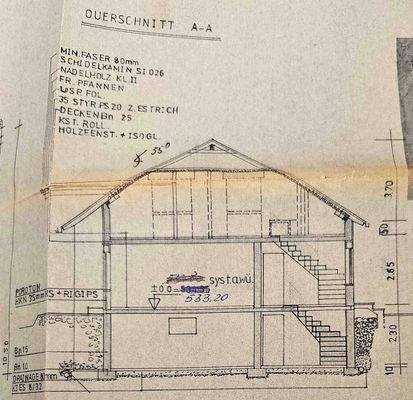 QUERSCHNITT A-A
MIN.FASER 80mm
SCHIDELKAMIN SI 026
NADELHOLZ KL.II
FR. PFANNEN
USP. FOL.
35 STYR.PS20 Z.ESTRICH
DECKEN Bn 25
KST. ROLL.
HOLZFENST. + ISOGL.
55°
3.70
50
syst.awü.
± 0.0 =
533.20
2.65
POROTON
HKN 35mm KS + RIGIPS
10.56
2.30
Bn 15
Bn 10
DRAINAGE
KIES 8/32
10